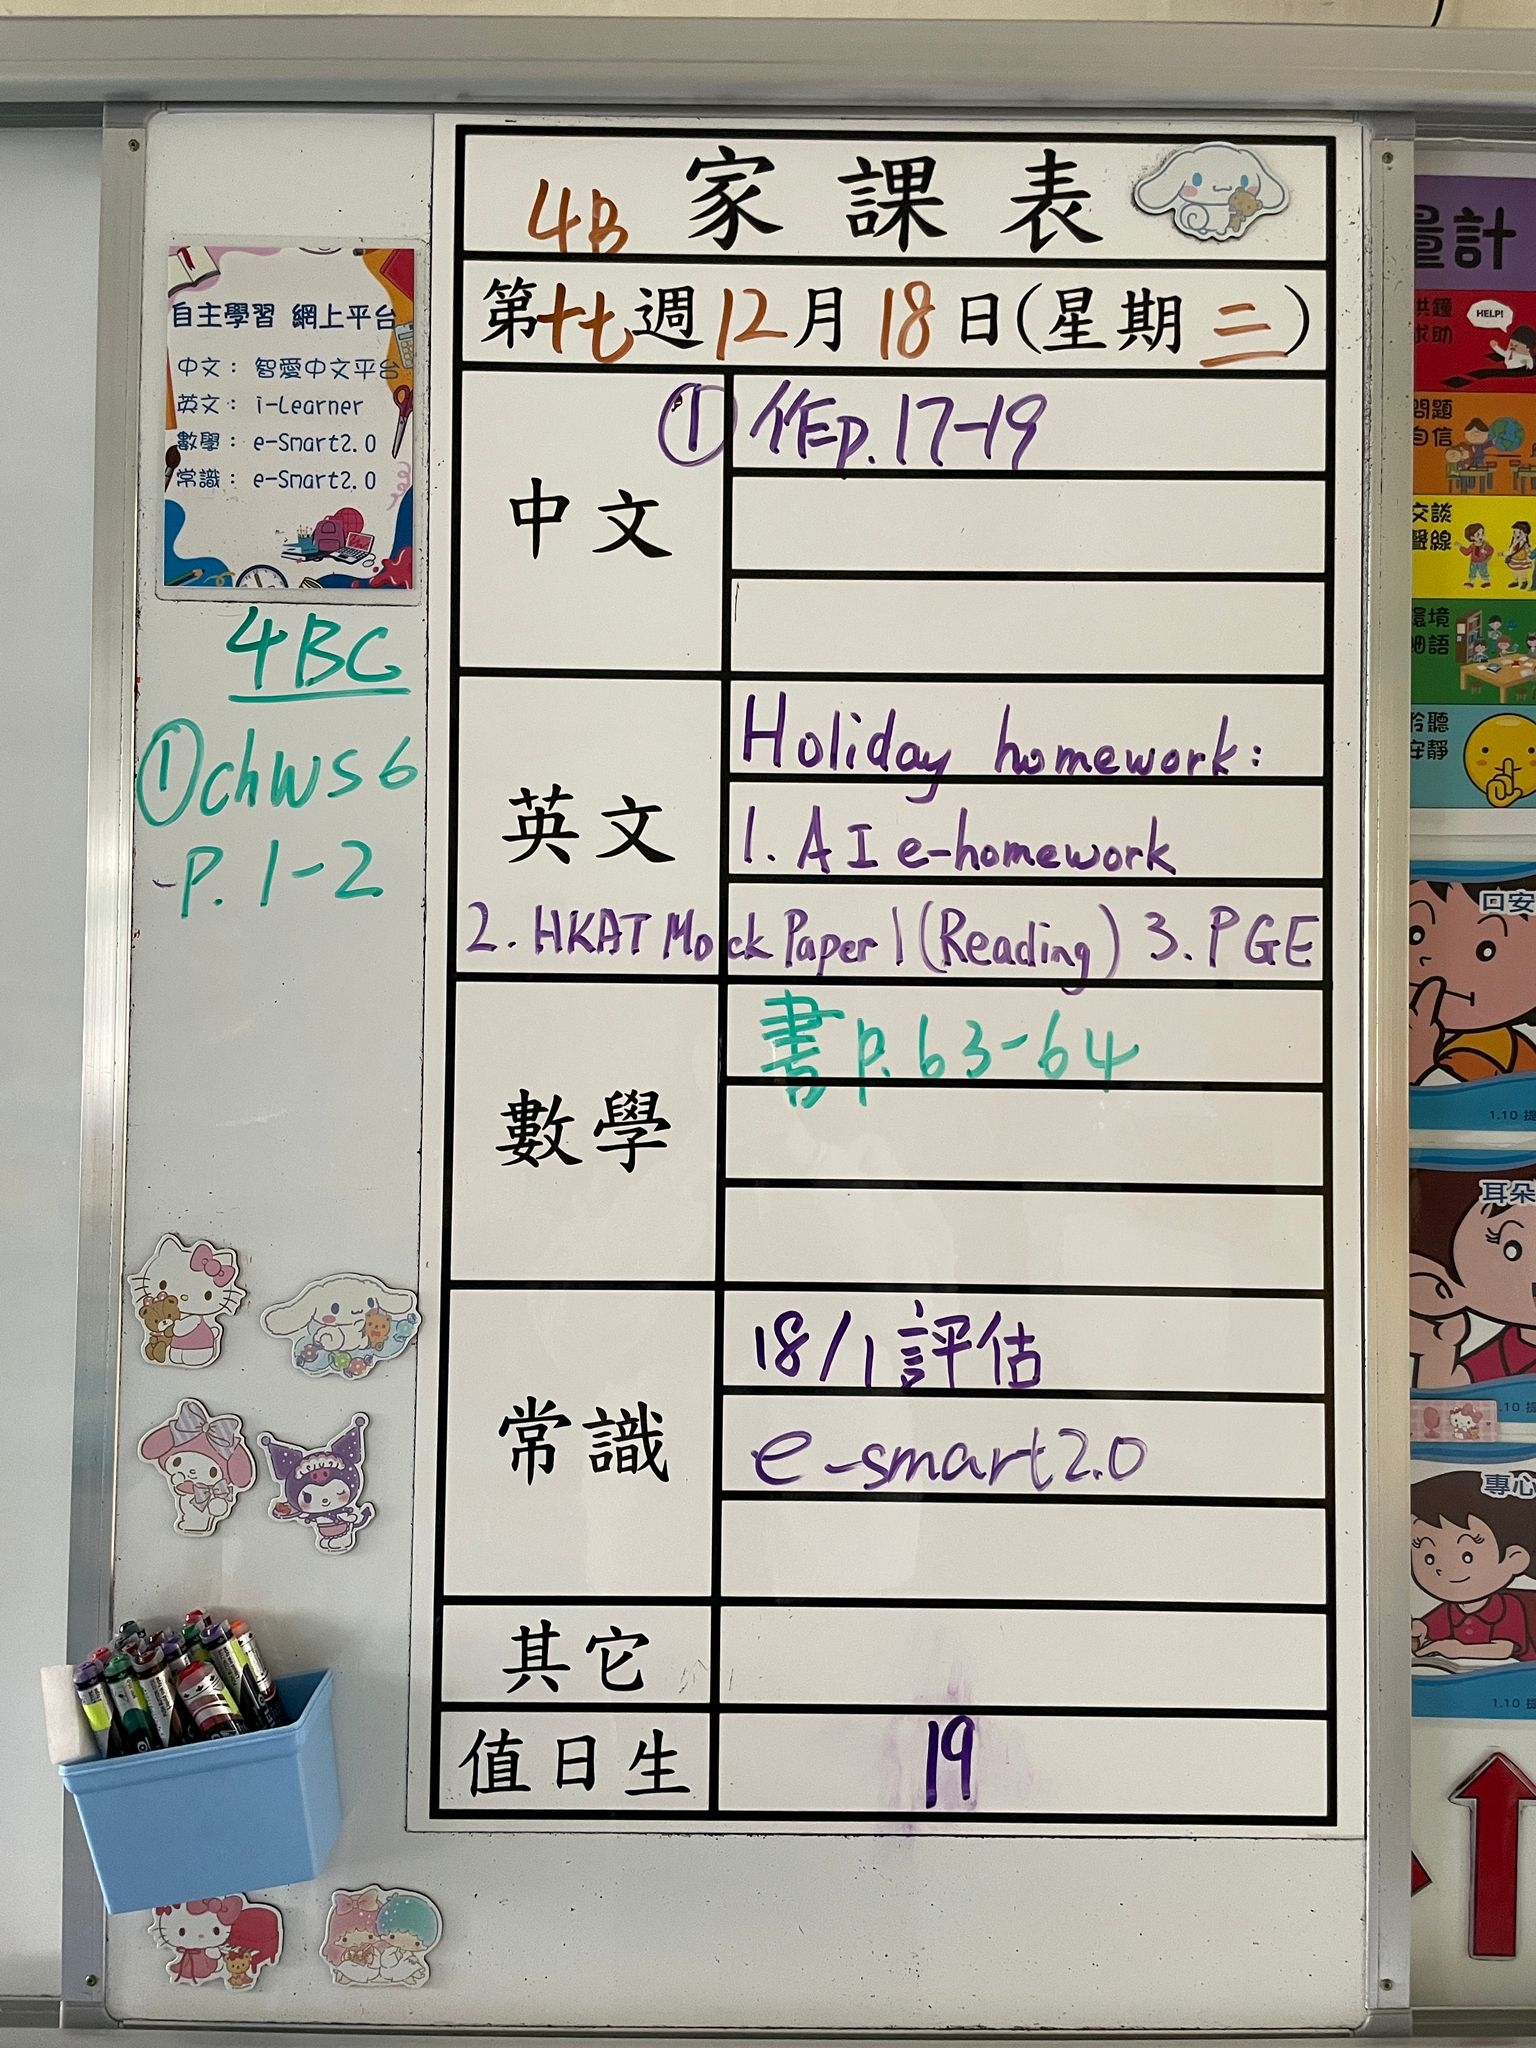 4B 家課表
第十七週12月18日(星期三)
自主學習 網上平台
中文： 智愛中文平台
英文： i-Learner
數學： e-Smart2.0
常識： e-Smart2.0
4BC
①chWS6
p. 1-2
中文
① 作p.17-19
英文
Holiday homework:
1. AI e-homework
2. HKAT Mock Paper 1 (Reading) 3. PGE
數學
書p.63-64
常識
18/1 評估
e-smart2.0
其它
值日生
19
量計
HELP!
求助
問題
自信
交談
聲線
環境
細語
聆聽
安靜
口安
1.10 提
耳朵
1.10 提
專心
1.10 提